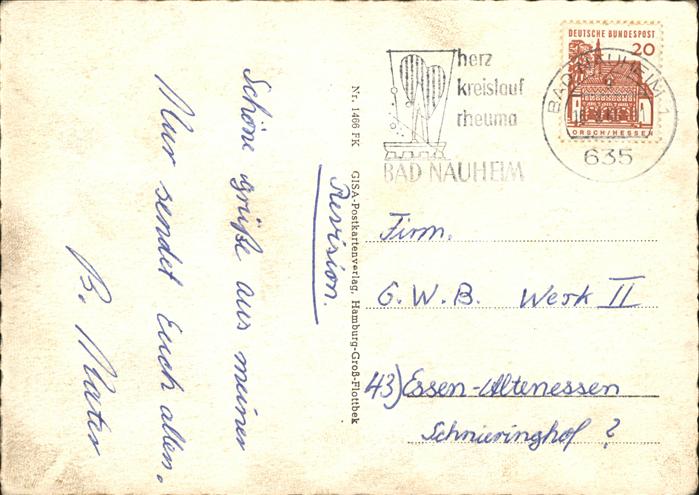 Schöne Grüße aus meiner
Kur sendet Euch allen.
B. Mater
Nr. 1466 FK GISA-Postkartenverlag, Hamburg-Groß-Flottbek
Revision.
herz
kreislauf
rheuma
BAD NAUHEIM
DEUTSCHE BUNDESPOST
20
LORSCH/HESSEN
BAD NAUHEIM 1
635
Firm.
G.W.B. Werk II
43) Essen-Altenessen
Schnieringhof ?